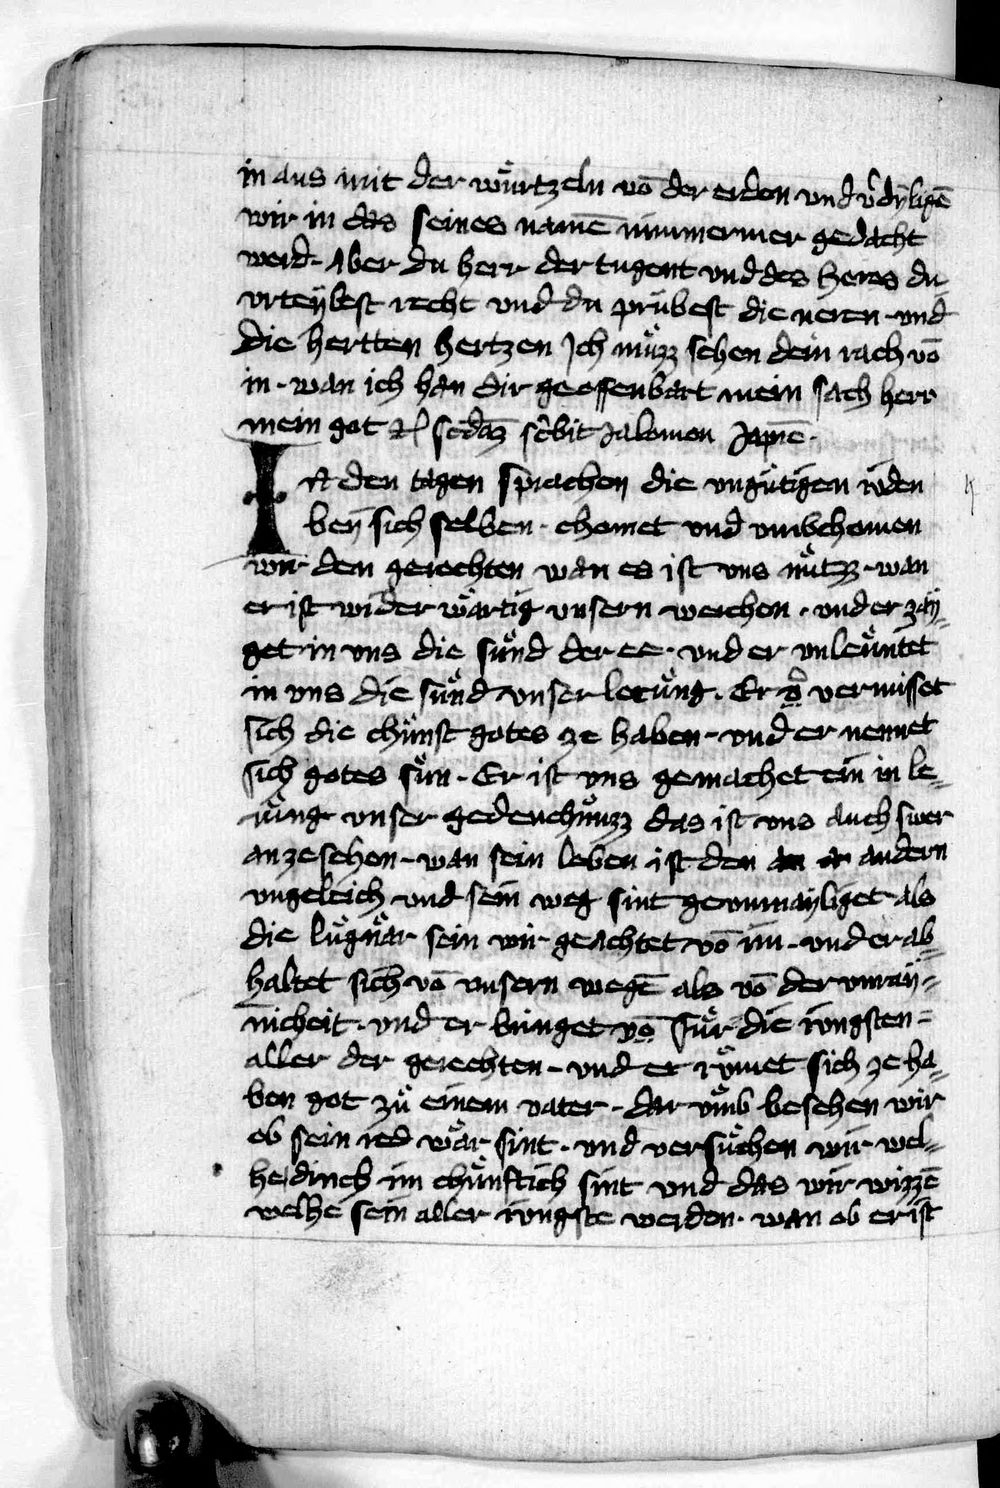 in aus mit der wůrtzeln võ der erden vnd v̓dyligẽ
wir in das seines namẽ nimmermer gedacht
werd · Aber du herr der tugent vnd des heres du
vrteylest recht vnd du prübest die neren · vnd
die hertten hertzen Ich můzz sehen dein rach võ
in · wan ich han dir geoffenbart mein sach herr
mein got
In den tagen sprachen die vngůtigen iuden
bey sich selben · chomet vnd vmbchomen
wir dem gerechten wan es ist vns nůtzz · wan
er ist wider wårtig vnsern werchen · vnd er zay=
get in vns die sůnd der ee · vnd er vnleůntet
in vns die sůnd vnser lerůng · Er vermisset
sich die chůnst gotes ze haben · vnd er nennet
sich gotes sůn · Er ist vns gemachet ein in le=
růng vnser gedenchnůzz das ist vns auch swer
an ze sehen · wan sein leben ist den andern
vngeleich vnd sein weg sint gevnmayliget als
die lůgnår sein wir geachtet võ im · vnd er ab=
haltet sich võ vnsern wegẽ als võ der vnray=
nicheit · vnd er bringet võ fůr die iungsten =
aller der gerechten · vnd er růmet sich ze ha=
ben got zů einem vater · dar vmb besehen wir
ob sein red wår sint · vnd versůchen wir wel=
he dinch im chůnftich sint vnd das wir wizzẽ
welhe sein aller iungste werden · wan ob er ist